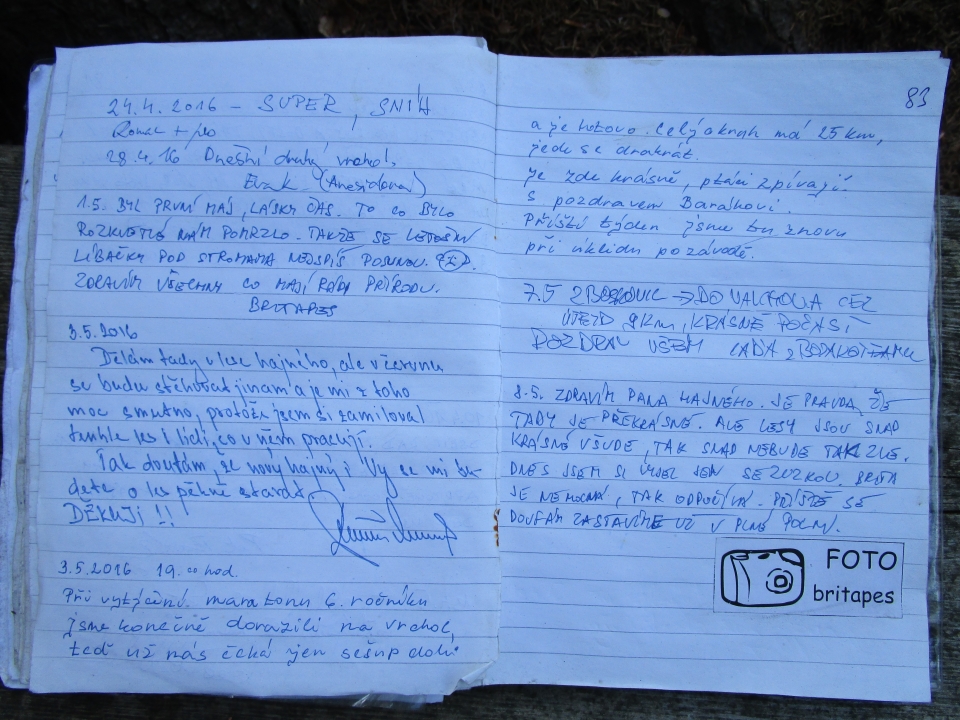 24.4. 2016 – SUPER, SNÍH
Roman + pes
28.4.16 Dnešní druhý vrchol,
1.5. BYL PRVNÍ MÁJ, LÁSKY ČAS. TO CO BYLO
ROZKVETLÉ NÁM POMRZLO. TAKŽE SE LETOŠNÍ
LÍBAČKY POD STROMAMA NEJSPÍŠ POSUNOU.
ZDRAVÍM VŠECHNY CO MAJÍ RÁDI PŘÍRODU.
BRITAPES
3.5.2016
Dělám tady v lese hajného, ale v červnu
se budu stěhovat jinam a je mi z toho
moc smutno, protože jsem si zamiloval
tenhle les i lidi, co v něm pracují.
Tak doufám, že nový hajný i Vy se mi bu-
dete o les pěkně starat.
DĚKUJI !!
3.5.2016 19.00 hod.
Při vytýčení maratonu 6. ročníku
jsme konečně dorazili na vrchol,
teď už nás čeká jen sešup dolů
83
a je hotovo. Celý okruh má 25 km,
jede se dvakrát.
Je zde krásně, ptáci zpívají
S pozdravem Barákovi.
Příští týden jsme tu znovu
při úklidu po závodě.
7.5 Z BOSKOVIC → DO VALCHOVA CEL
ÚJEZD 9km, KRÁSNÉ POČASÍ
POZDRAV VŠEM LAĎA z
8.5. ZDRAVÍM PANA HAJNÉHO. JE PRAVDA, ŽE
TADY JE PŘEKRÁSNĚ. ALE LESY JSOU SNAD
KRÁSNÉ VŠUDE, TAK SNAD NEBUDE TAK ZLE.
DNES JSEM SI VYJEL JEN SE ZUZKOU. BRITA
JE NEMOCNÁ, TAK ODPOČÍVÁ. PŘÍŠTĚ SE
DOUFÁM ZASTAVÍME UŽ V PLNÉ POLNÍ.
FOTO
britapes